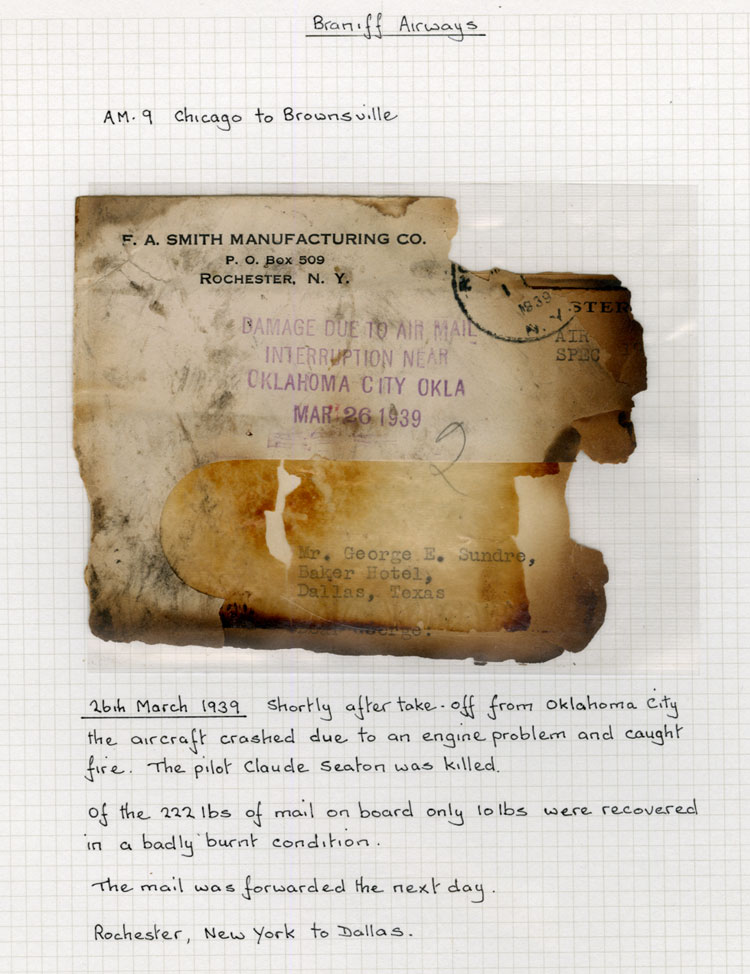 Braniff Airways
AM.9 Chicago to Brownsville
F. A. SMITH MANUFACTURING CO.
P. O. Box 509
ROCHESTER, N. Y.
1
1939
N.Y.
STER
AIR
SPEC
DAMAGE DUE TO AIR MAIL
INTERRUPTION NEAR
OKLAHOMA CITY OKLA
MAR 26 1939
2
Mr. George E. Sundre,
Baker Hotel,
Dallas, Texas
Dear George:
26th March 1939 Shortly after take-off from Oklahoma City
the aircraft crashed due to an engine problem and caught
fire. The pilot Claude Seaton was killed.
Of the 222 lbs of mail on board only 10 lbs were recovered
in a badly burnt condition.
The mail was forwarded the next day.
Rochester, New York to Dallas.